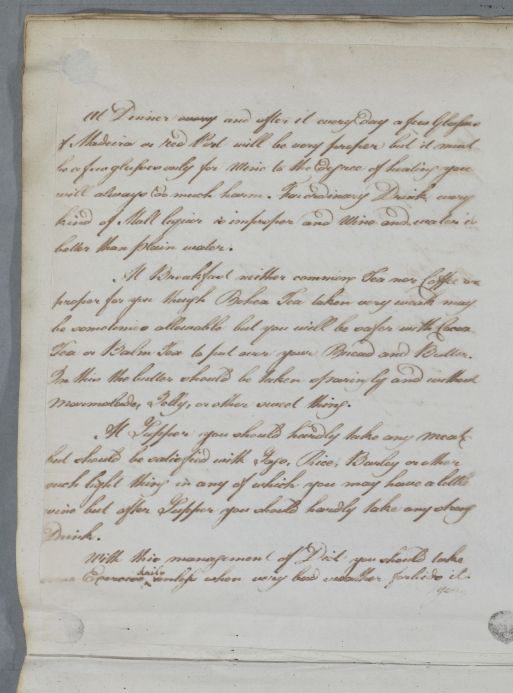 At Dinner every and after it every day a few Glasses
of Madeira or red Port will be very proper but it must
be a few glasses only for Wine to the Degree of heating you
will always do much harm. For ordinary Drink, every
kind of Malt liquor is improper and Wine and water is
better than plain water.
At Breakfast neither common Tea nor Coffee are
proper for you though Bohea Tea taken very weak may
be sometimes allowable but you will be safer with Cocoa
Tea or Balm Tea to put over your Bread and Butter.
In this the butter should be taken sparingly and without
Marmalade, Jelly, or other sweet thing.
At Supper you should hardly take any meat
but should be satisfied with Sago, Rice, Barley or other
such light thing in any of which you may have a little
wine but after Supper you should hardly take any strong
Drink.
With this management of Diet you should take
some Exercise daily unless when very bad weather forbids it.